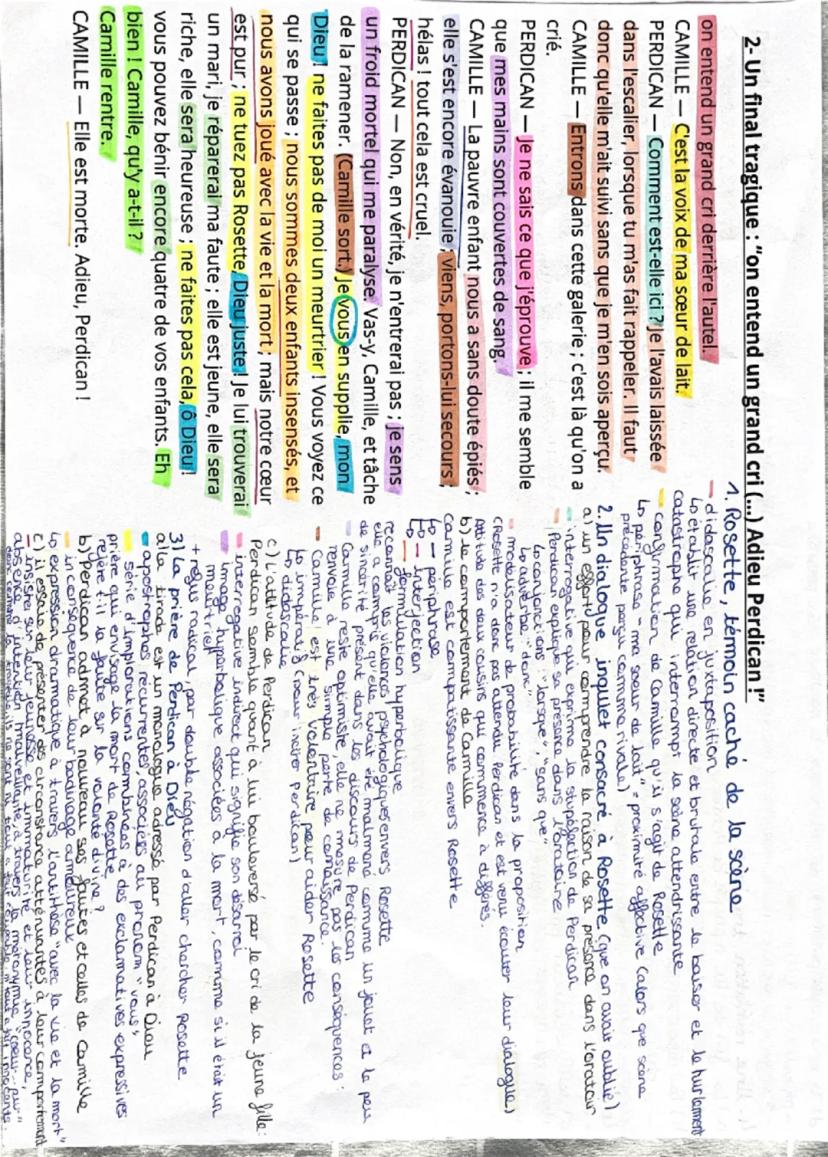 2- Un final tragique : "on entend un grand cri (...) Adieu Perdican !"
on entend un grand cri derrière l'autel.
CAMILLE — C'est la voix de ma sœur de lait.
PERDICAN — Comment est-elle ici ? je l'avais laissée
dans l'escalier, lorsque tu m'as fait rappeler. Il faut
donc qu'elle m'ait suivi sans que je m'en sois aperçu.
CAMILLE — Entrons dans cette galerie ; c'est là qu'on a
crié.
PERDICAN — Je ne sais ce que j'éprouve ; il me semble
que mes mains sont couvertes de sang.
CAMILLE — La pauvre enfant nous a sans doute épiés ;
elle s'est encore évanouie ; viens, portons-lui secours ;
hélas ! tout cela est cruel.
PERDICAN — Non, en vérité, je n'entrerai pas ; je sens
un froid mortel qui me paralyse. Vas-y, Camille, et tâche
de la ramener. (Camille sort.) Je vous en supplie, mon
Dieu ! ne faites pas de moi un meurtrier ! Vous voyez ce
qui se passe ; nous sommes deux enfants insensés, et
nous avons joué avec la vie et la mort ; mais notre cœur
est pur ; ne tuez pas Rosette, Dieu juste ! Je lui trouverai
un mari, je réparerai ma faute ; elle est jeune, elle sera
riche, elle sera heureuse ; ne faites pas cela, ô Dieu !
vous pouvez bénir encore quatre de vos enfants. Eh
bien ! Camille, qu'y a-t-il ?
Camille rentre.
CAMILLE — Elle est morte. Adieu, Perdican !
1. Rosette, témoin caché de la scène
- didascalie en juxtaposition
↳ établit une relation directe et brutale entre le baiser et le hurlement
catastrophe qui interrompt la scène attendrissante
- confirmation de Camille qu'il s'agit de Rosette
↳ périphrase "ma soeur de lait" = proximité affective (alors que scène
précédente perçu comme rivale)
2. Un dialogue inquiet consacré à Rosette (que on avait oublié)
a: un effort pour comprendre la raison de sa présence dans l'orateur
- interrogative qui exprime la stupéfaction de Perdican
- Perdican explique sa présence dans l'oratoire
↳ conjonctions "lorsque", "sans que"
↳ adverbe "donc"
- modalisateur de probabilité dans la proposition
(Rosette n'a donc pas attendu Perdican et est venu écouter leur dialogue)
Attitude des deux cousins qui commence à différer.
b) le comportement de Camille
Camille est compatissante envers Rosette
↳ - périphrase
↳ - interjection
↳ - formulation hyperbolique
reconnait les violences psychologiques envers Rosette
elle a compris qu'elle avait été malmené comme un jouet et le peu
de sincérité présent dans les discours de Perdican
- Camille reste optimiste, elle ne mesure pas les conséquences :
renvoie à une simple perte de connaissance.
- Camille est très volontaire pour aider Rosette
↳ impératifs (pour inciter Perdican)
↳ didascalie
c) L'attitude de Perdican
Perdican semble quant à lui bouleversé par le cri de la jeune fille :
- interrogative indirect qui signifie son désarroi
- image hyperbolique associées à la mort, comme si il était un
meurtrier
+ refus radical, par double négation d'aller chercher Rosette
3) la prière de Perdican à Dieu
a) la tirade est un monologue adressé par Perdican à Dieu
- apostrophes récurrentes, associées au pronom "vous",
- série d'implorations combinées à des exclamatives expressives
prière qui envisage la mort de Rosette
rejète t-il la faute sur la volonté divine ?
b) Perdican admet à nouveau ses fautes et celles de Camille
- inconséquence de leur badinage amoureux
↳ expression dramatique à travers l'antithèse "avec la vie et la mort"
c) il essaie de présenter des circonstance atténuantes à leur comportement
- insistre sur leur jeunesse, immaturité et leur innocence,
absence d'intention malveillante à travers la métonymie "coeur pur"